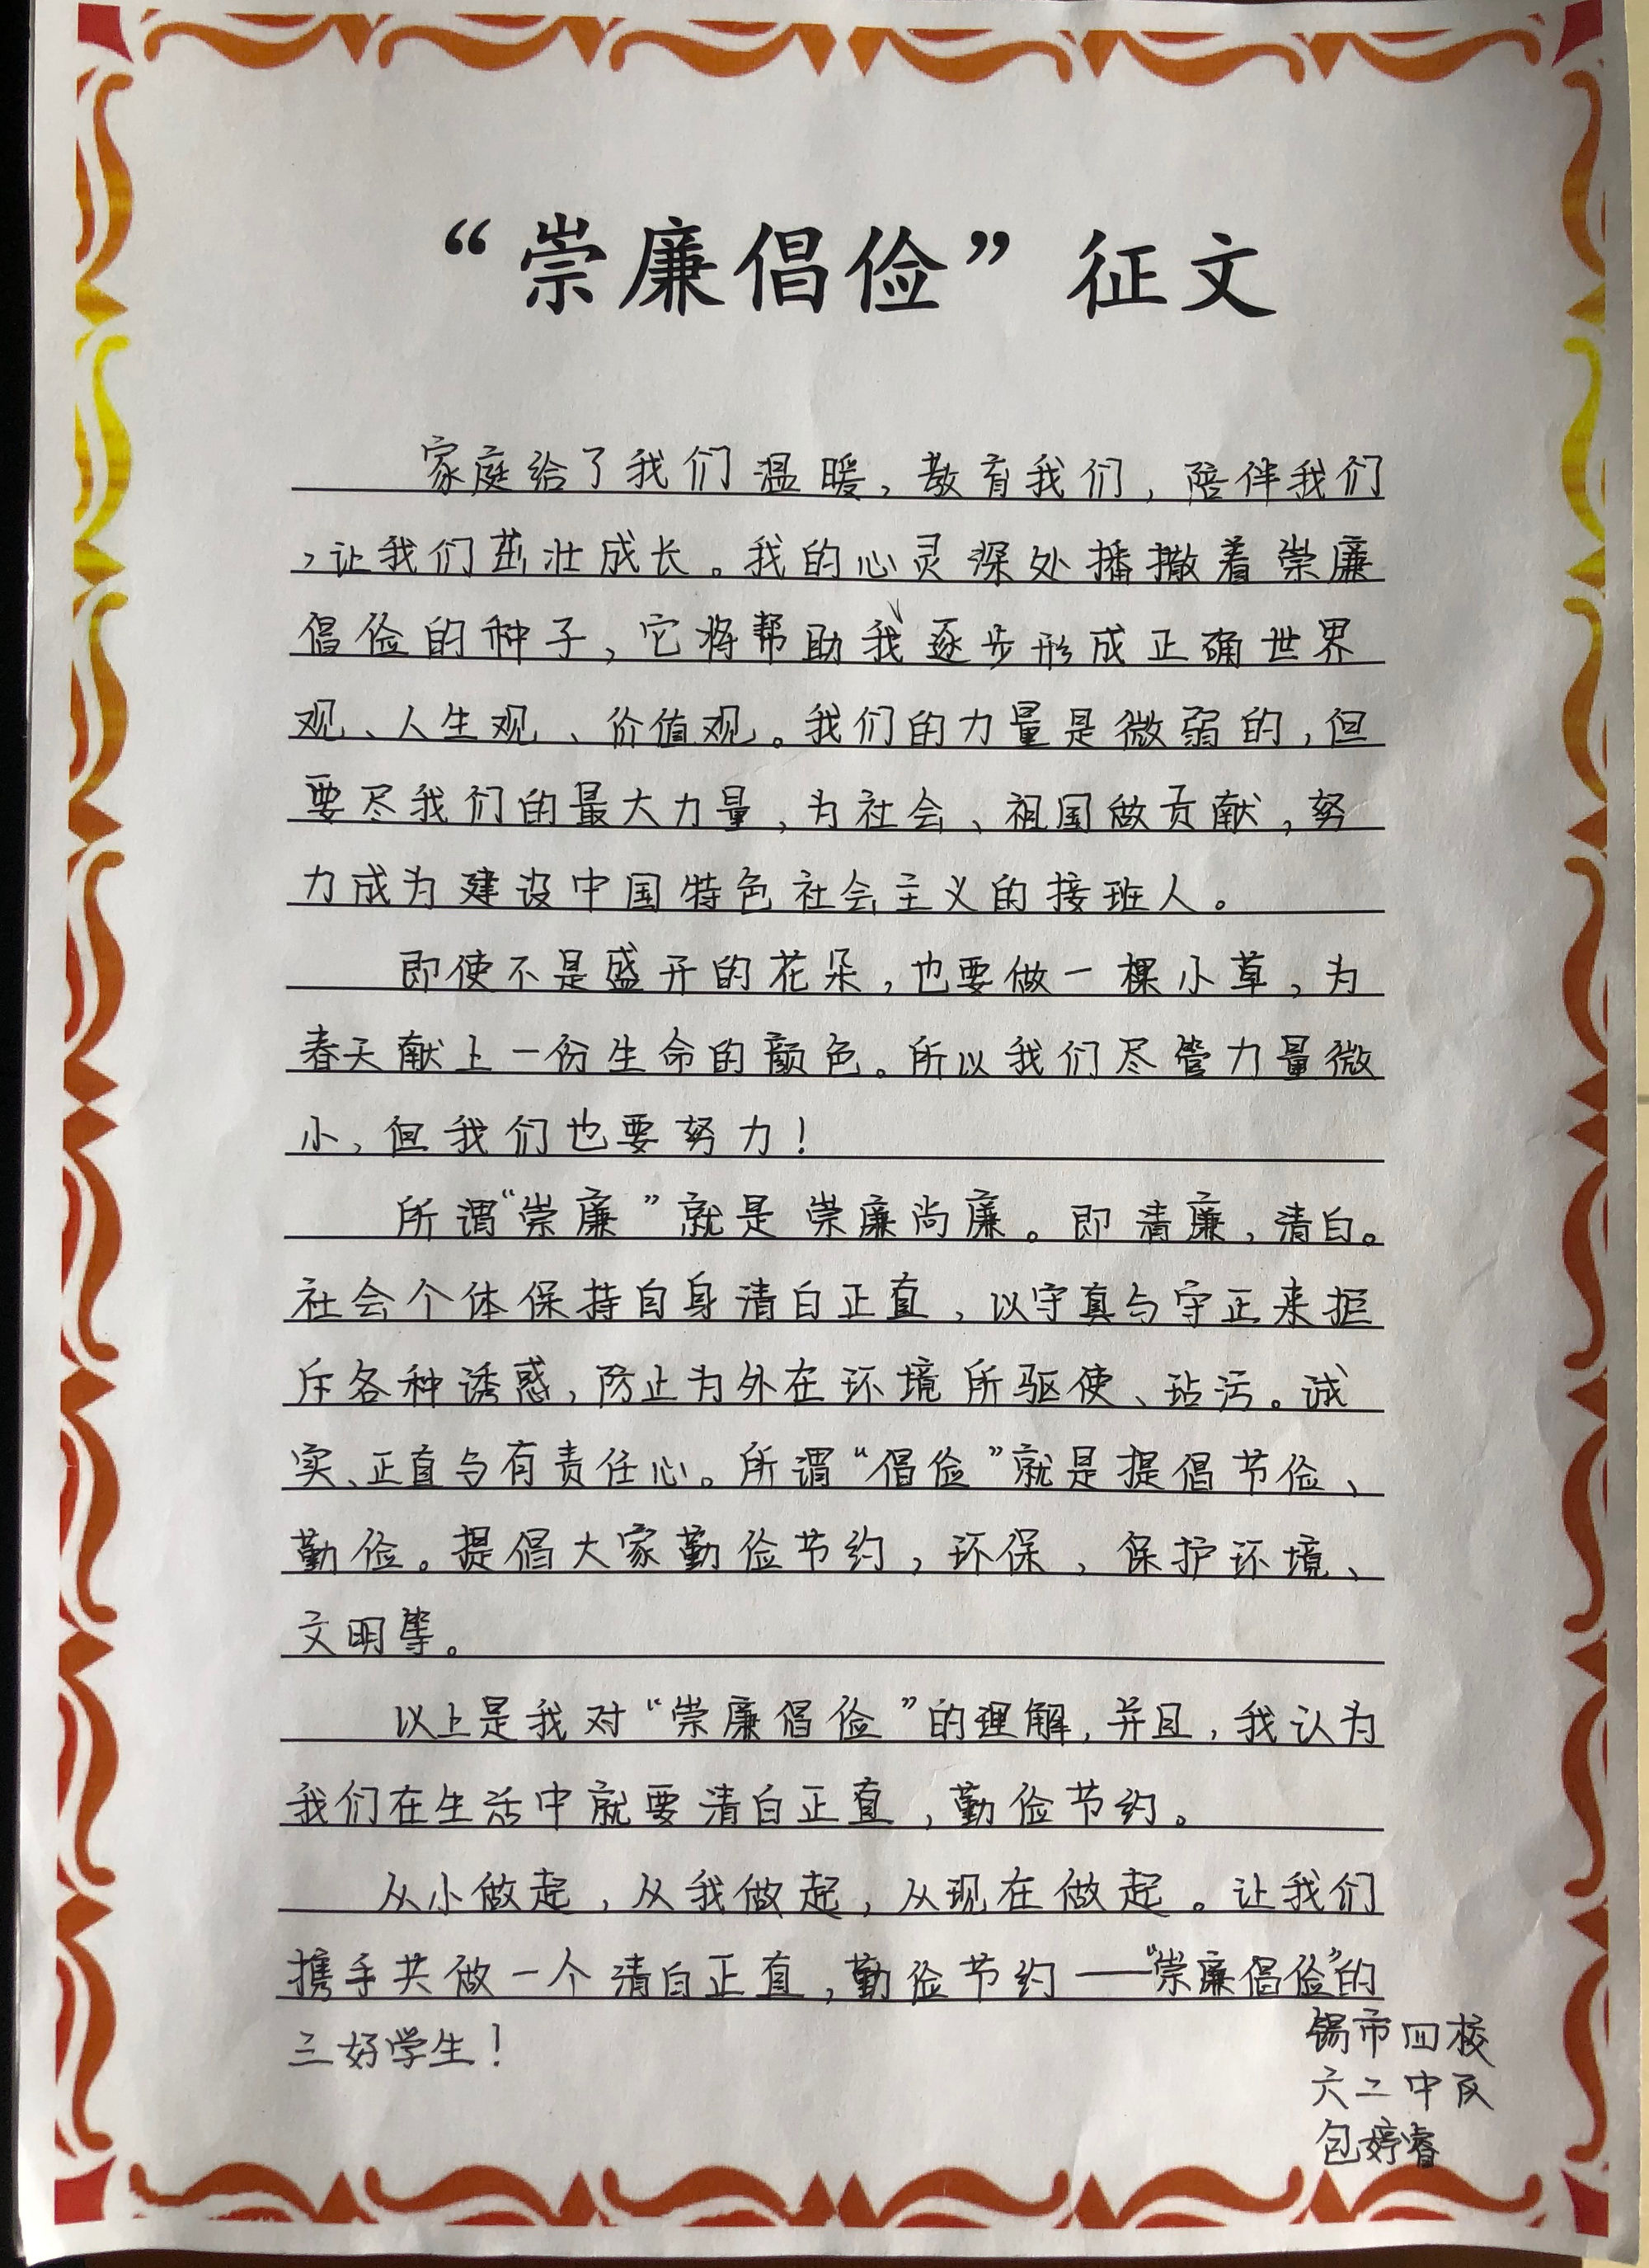 “崇廉倡俭”征文
家庭给了我们温暖，教育我们，陪伴我们
，让我们茁壮成长。我的心灵深处播撒着崇廉
倡俭的种子，它将帮助我逐步形成正确世界
观、人生观、价值观。我们的力量是微弱的，但
要尽我们的最大力量，为社会、祖国做贡献，努
力成为建设中国特色社会主义的接班人。
即使不是盛开的花朵，也要做一棵小草，为
春天献上一份生命的颜色。所以我们尽管力量微
小，但我们也要努力！
所谓“崇廉”就是崇廉尚廉。即清廉，清白。
社会个体保持自身清白正直，以守真与守正来拒
斥各种诱惑，防止为外在环境所驱使、玷污。诚
实、正直与有责任心。所谓“倡俭”就是提倡节俭、
勤俭。提倡大家勤俭节约，环保，保护环境、
文明等。
以上是我对“崇廉倡俭”的理解，并且，我认为
我们在生活中就要清白正直，勤俭节约。
从小做起，从我做起，从现在做起。让我们
携手共做一个清白正直，勤俭节约——“崇廉倡俭”的
三好学生！
锡市四校
六二中队
包婷睿